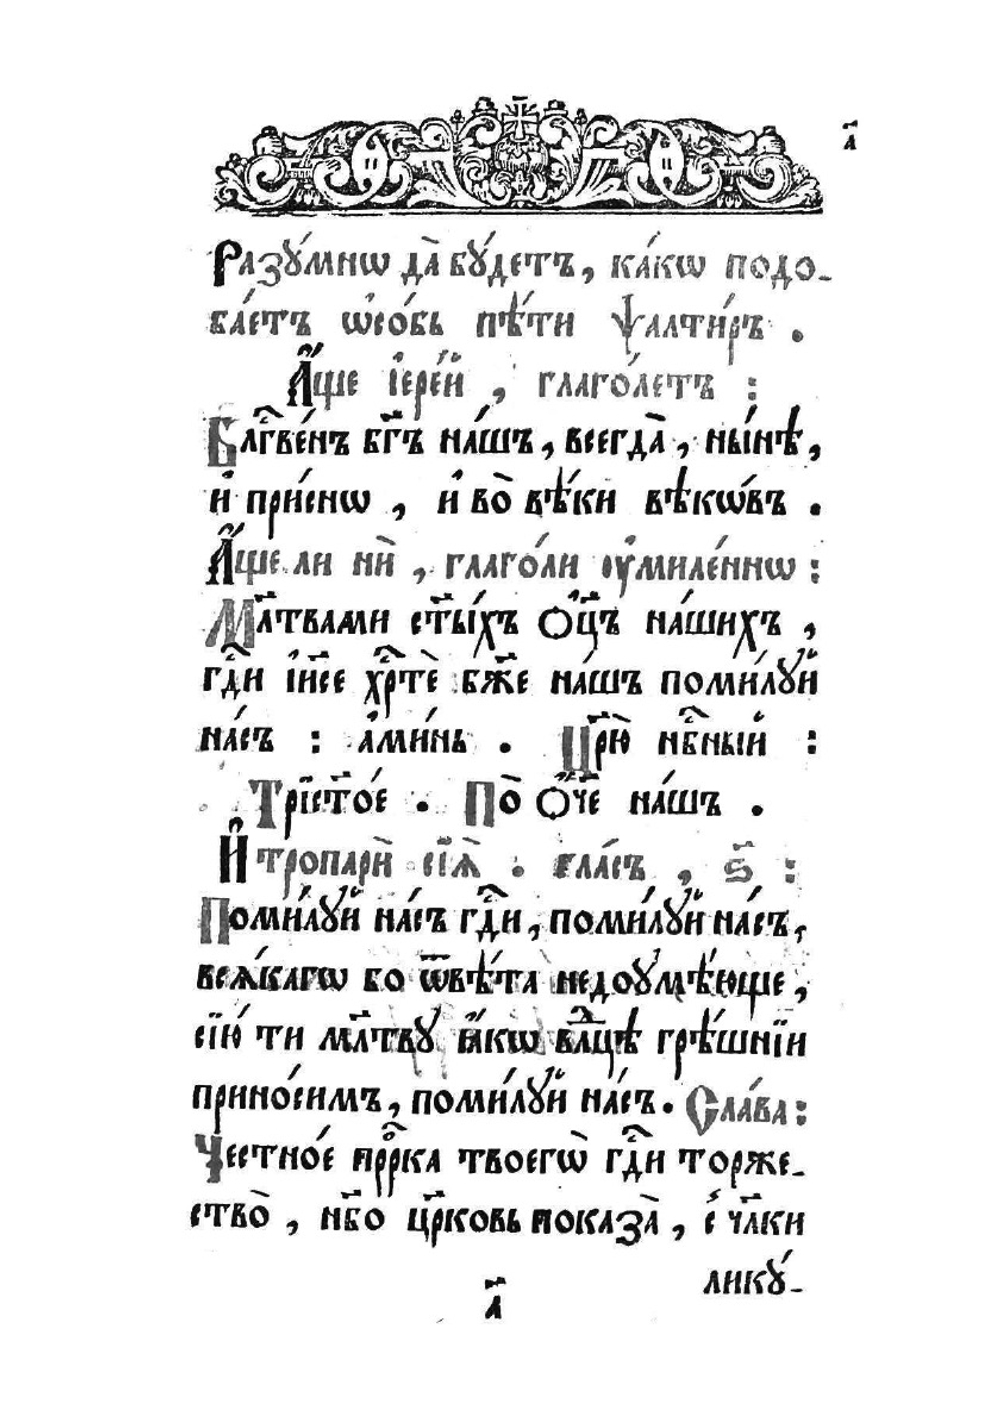 а҃
Разꙋ́мнѡ да̀ бꙋ́детъ, ка́кѡ подо-
ба́етъ ѡ҆со́бь пѣ́ти ѱалти́рь .
А҆́ще і҆ере́й , глаго́летъ :
Бл҃гве́нъ бг҃ъ на́шъ, всегда̀, ны́нѣ,
и҆ при́снѡ , и҆ во̀ вѣ́ки вѣкѡ́въ .
А҆́ще ли нѝ , глаго́ли ᲂу҆миле́ннѡ :
Мл҃твами ст҃ы́хъ ѻ҆ц҃ъ на́шихъ ,
гд҇и і҆и҃се хрⷭ҇тѐ бж҃е на́шъ поми́лꙋй
на́съ : а҆ми́нь . Цр҃ю̀ нб҇ный :
Трист҃о́е . По̀ ѻ҆́ч҃е на́шъ .
И҆ тропарѝ сїѧ̀ . гла́съ , ѕ҃ :
Поми́лꙋй на́съ гд҇и, поми́лꙋй на́съ,
всѧ́кагѡ бо ѿвѣ́та недоꙋмѣ́юще,
сїю́ ти мл҃твꙋ ꙗ҆́кѡ влⷣцѣ грѣ́шнїи
прино́симъ, поми́лꙋй на́съ. Сла́ва:
Честно́е прⷪ҇рка твоегѡ̀ гд҇и торже-
ство̀ , нб҃о цр҃ковь показа̀ , с̾ чл҃ки
ликꙋ́-
а҃